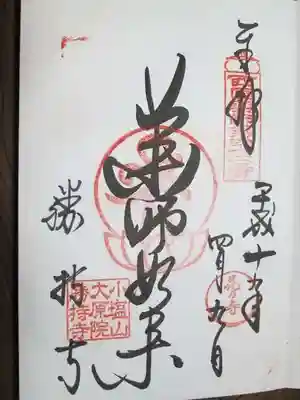 奉拝
平成十八年
四月九日
薬師如来
勝持寺
小塩山
大原院
勝持寺